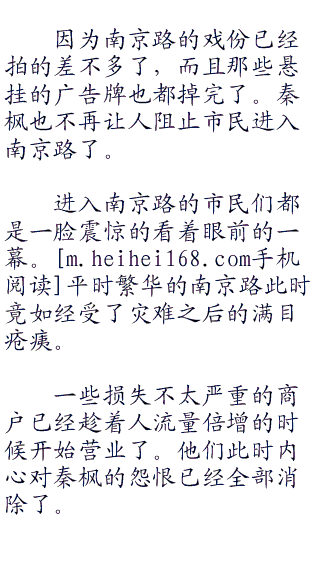 因为南京路的戏份已经
拍的差不多了，而且那些悬
挂的广告牌也都掉完了。秦
枫也不再让人阻止市民进入
南京路了。
进入南京路的市民们都
是一脸震惊的看着眼前的一
幕。[m.heihei168.com手机
阅读]平时繁华的南京路此时
竟如经受了灾难之后的满目
疮痍。
一些损失不太严重的商
户已经趁着人流量倍增的时
候开始营业了。他们此时内
心对秦枫的怨恨已经全部消
除了。